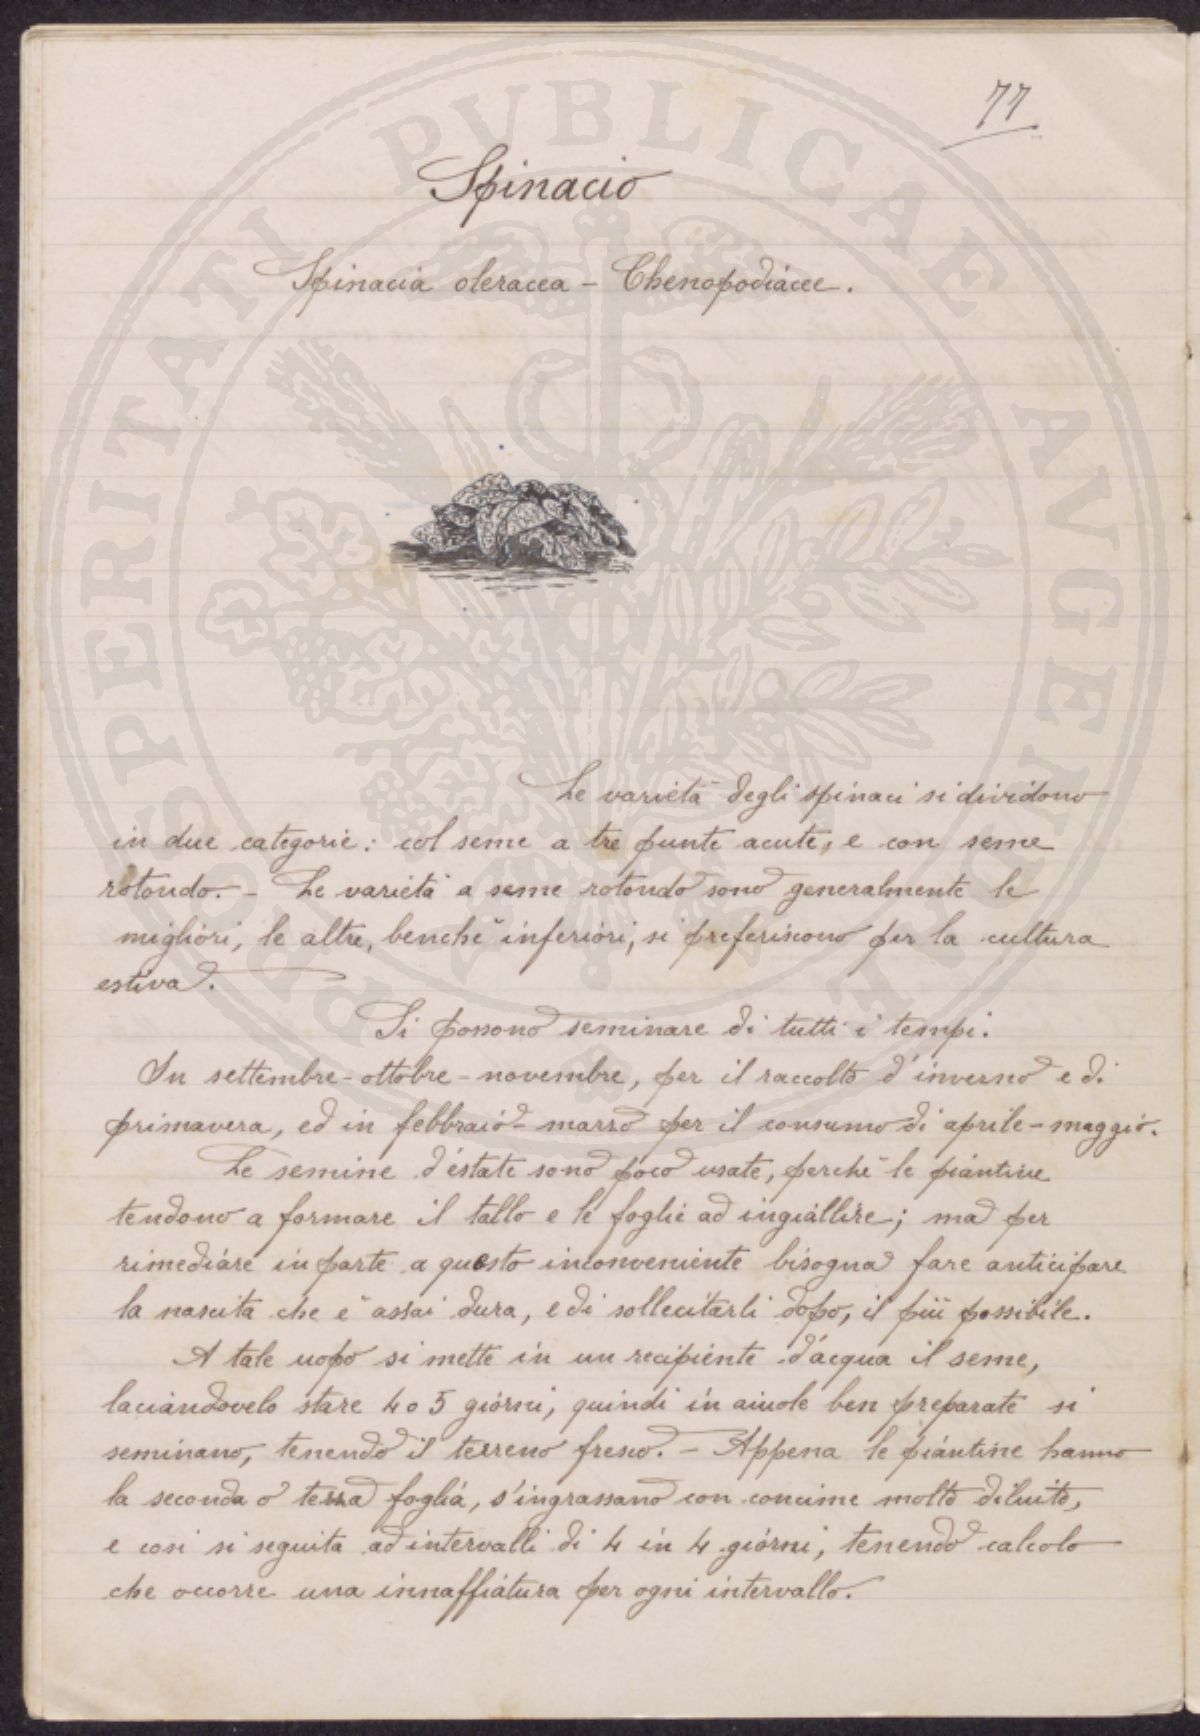 77
Spinacio
Spinacia oleracea - Chenopodiacee.
Le varietà degli spinaci si dividono
in due categorie: col seme a tre punte acute, e con seme
rotondo. - Le varietà a seme rotondo sono generalmente le
migliori, le altre, benchè inferiori, si preferiscono per la cultura
estiva.
Si possono seminare di tutti i tempi.
In settembre - ottobre - novembre, per il raccolto d'inverno e di
primavera, ed in febbraio - marzo per il consumo di aprile - maggio.
Le semine d'estate sono poco usate, perchè le piantine
tendono a formare il tallo e le foglie ad ingiallire; ma per
rimediare in parte a questo inconveniente bisogna fare anticipare
la nascita che è assai dura, e di sollecitarli dopo, il più possibile.
A tale uopo si mette in un recipiente d'acqua il seme,
laciandovelo stare 4 o 5 giorni, quindi in aiuole ben preparate si
seminano, tenendo il terreno fresco. - Appena le piantine hanno
la seconda o terza foglia, s'ingrassano con concime molto diluito,
e così si seguita ad intervalli di 4 in 4 giorni, tenendo calcolo
che occorre una innaffiatura per ogni intervallo.
PROSPERITATI PVBLICAE AVGENDAE